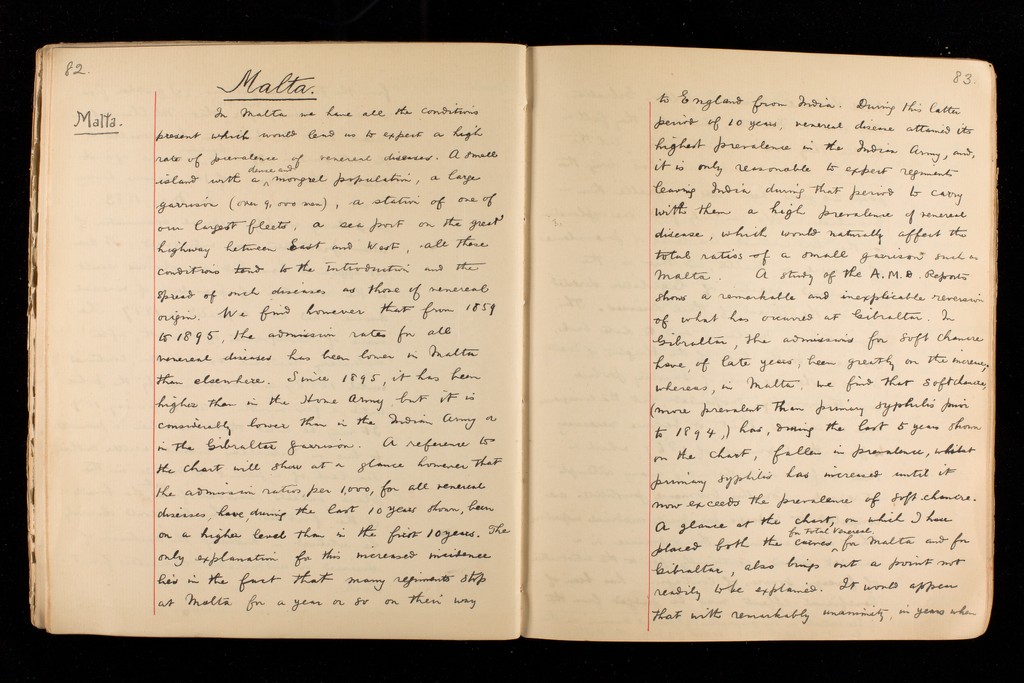 82.
Malta.
Malta.
In Malta we have all the conditions
present which would lead us to expect a high
rate of prevalence of venereal diseases. A small
island with a dense and mongrel population, a large
garrison (over 9,000 men), a station of one of
our largest fleets, a sea port on the great
highway between East and West, all these
conditions tend to the introduction and the
spread of such diseases as those of venereal
origin. We find however that from 1859
to 1895, the admission rates for all
venereal diseases has been lower in Malta
than elsewhere. Since 1895, it has been
higher than in the Home Army but it is
considerably lower than in the Indian Army or
in the Gibraltar garrison. A reference to
the chart will show at a glance however that
the admission ratios, per 1,000, for all venereal
diseases, have, during the last 10 years shown, been
on a higher level than in the first 10 years. The
only explanation for this increased incidence
lies in the fact that many regiments stop
at Malta for a year or so on their way
83.
to England from India. During this latter
period of 10 years, venereal disease attained its
highest prevalence in the Indian Army, and,
it is only reasonable to expect regiments
leaving India during that period to carry
with them a high prevalence of venereal
disease, which would naturally affect the
total ratios of a small garrison such as
Malta. A study of the A.M.D. Reports
shows a remarkable and inexplicable reversion
of what has occurred at Gibraltar. In
Gibraltar, the admissions for soft chancre
have, of late years, been greatly on the increase,
whereas, in Malta, we find that soft chancre,
(more prevalent than primary syphilis prior
to 1894,) has, during the last 5 years shown
on the chart, fallen in prevalence, whilst
primary syphilis has increased until it
now exceeds the prevalence of soft chancre.
A glance at the chart, on which I have
placed both the curves for total venereal, for Malta and for
Gibraltar, also brings out a point not
readily to be explained. It would appear
that with remarkably unanimity, in years when